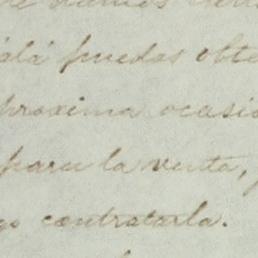 puedas obte
proxima ocasio
para la venta,
go contratarla.